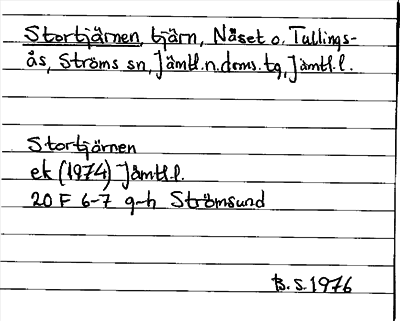 Stortjärnen, tjärn, Näset o. Tullings-
ås, Ströms sn, Jämtl.n.doms.tg, Jämtl.l.
Stortjärnen
ek (1974) Jämtl.l.
20 F 6-7 g-h Strömsund
B.S. 1976